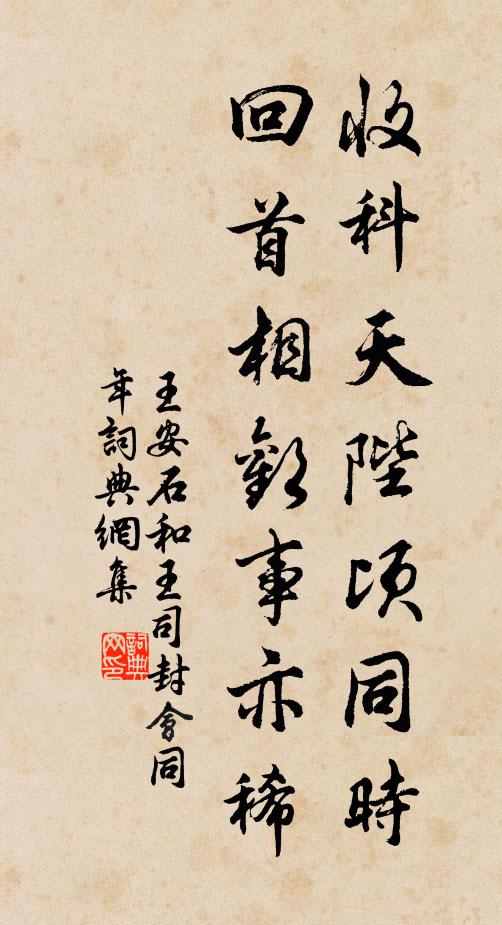 收科天陛頃同時
回首相歡事亦稀
王安石和王司封會同
年詞典網集
詞典
网印